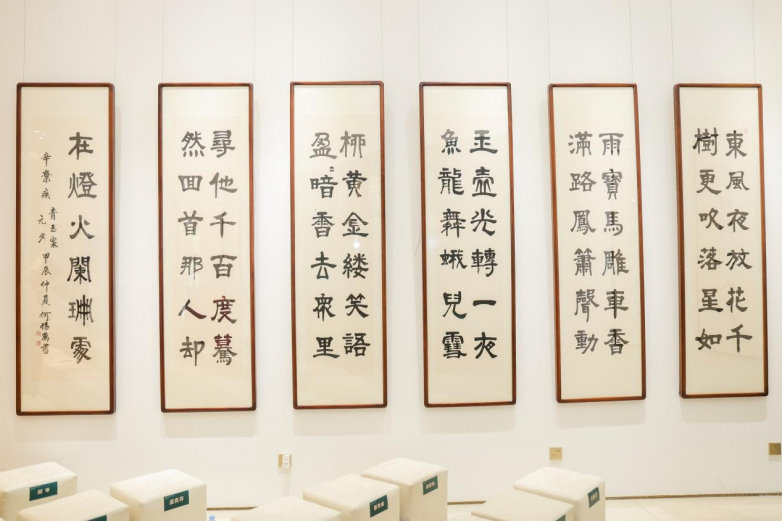 東風夜放花千
樹更吹落星如
雨寶馬雕車香
滿路鳳簫聲動
玉壺光轉一夜
魚龍舞蛾兒雪
柳黃金縷笑語
盈〻暗香去衆里
尋他千百度驀
然回首那人却
在燈火闌珊處
辛棄疾 青玉案 元夕 甲辰仲夏何書